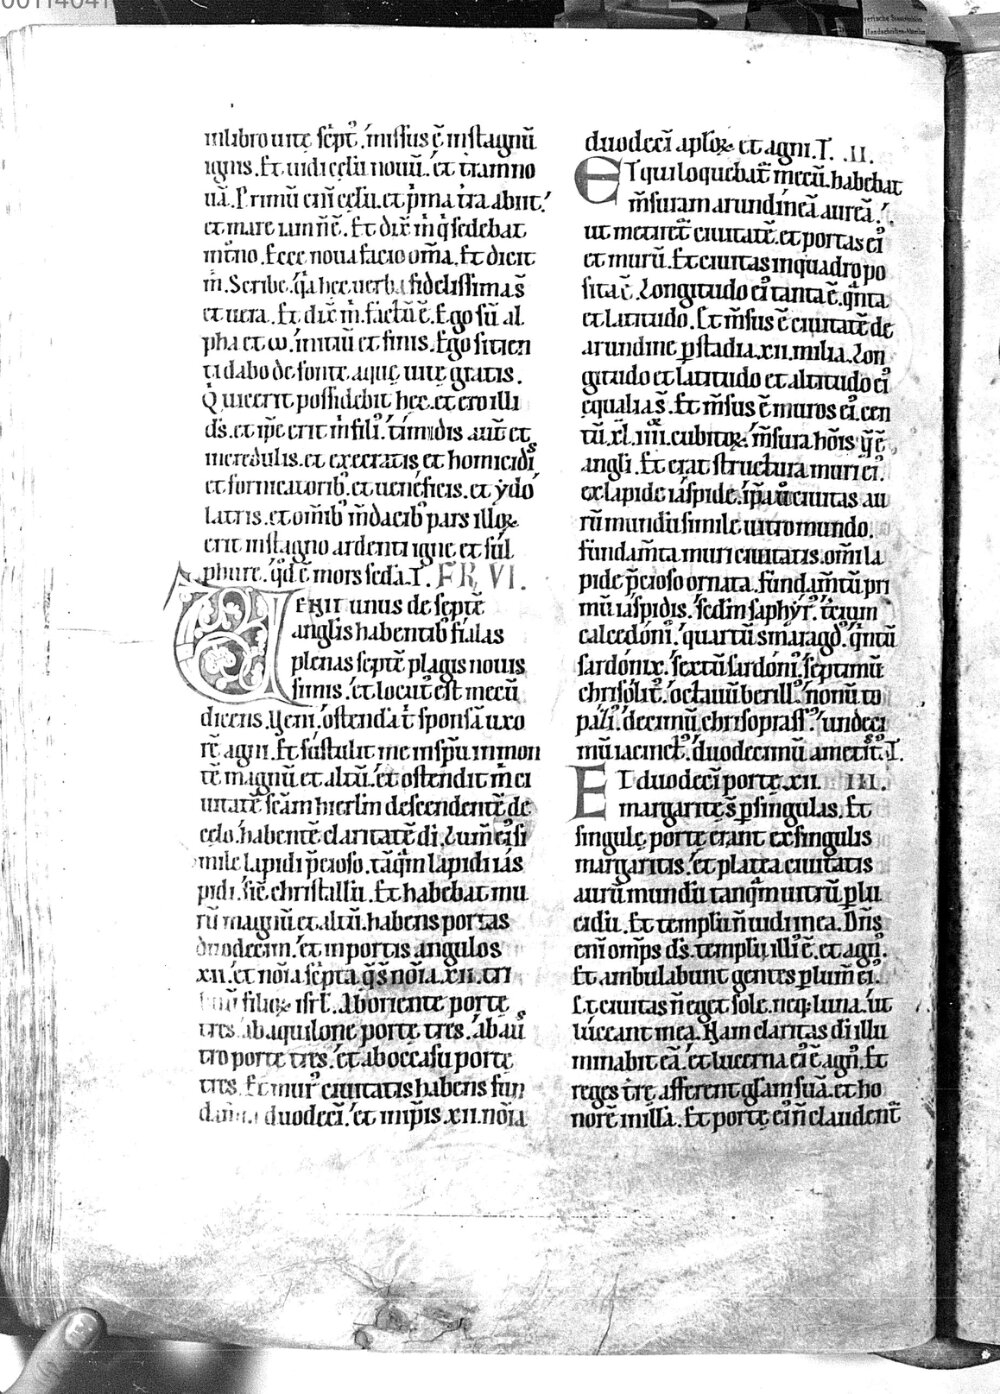 00114041
verische Staatsbiblio
Handschriften-Abteilu
inlibro uitę sc̄pt᷒. missus ē instagnū
ignis. Et uidi cęlū nouū. et t̄ram no
uā. Primū eni̅ cęlū. et p̄ma t̄ra abiit.
et mare iam n̄ ē. Et dix̄ m̄ q̄ sedebat
int̄no. Ecce noua facio om̄a. Et dicit
m̄. Scribe. q̄a hec uerba fidelissima s̄
et uera. Et dix̄ m̄. factū ē. Ego sū al
pha et ω. initiū et finis. Ego sitien
ti dabo de fonte aquę uitę gratis.
Q̇ uicerit possidebit hec. et ero illi
ds̄. et ip̄e erit m̄ fili᷒. timidis aut̄ et
incredulis. et execratis et homicidi᷒
et fornicatorib᷒. et ueneficis. et ydo
latris. et om̄ib᷒ m̄dacib᷒ pars illoꝝ
erit instagno ardenti igne et sul
phure. q̇d ē mors sc̄da. T. FR̄. VI.
VENIT unus de septē
angl̄is habentib᷒ fialas
plenas septē plagis nouis
simis. et locut᷒ est mecū
dicens. Veni. ostendā t̄ sponsā uxo
rē agni. Et sustulit me insp̄u in mon
tē magnū et altū. et ostendit m̄ ci
uitatē sc̄am hierl̄m descendentē de
cęlo. habentē claritatē di̅. Lum̄ ei᷒ si
mile lapidi p̄cioso. tāq̄m lapidi ias
pidi. sic̄ christallū. Et habebat mu
rū magnū et altū. habens portas
duodecim. et inportis angulos
xii. et no̅ia sc̄pta. q̄ s̄ no̅ia. xii. tri
buū filioꝝ isrl̄. Ab oriente portę
tres. ab aquilone portę tres. ab au᷒
tro portę tres. et ab occasu portę
tres. Et mur᷒ ciuitatis habens fun
dam̄ta duodeci̅. et inip̄is. xii. no̅ia
duodeci̅ aplo̅ꝝ et agni. T. .II.
ET qui loquebat᷒ mecū. habebat
m̄suram arundineā aureā.
ut metiret᷒ ciuitatē. et portas ei᷒
et murū. Et ciuitas inquadro po
sita ē. Longitudo ei᷒ tanta ē. q̄nta
et latitudo. Et m̄sus ē ciuitatē de
arundine p̲ stadia. xii. milia. Lon
gitudo et latitudo et altitudo ei᷒
equalia s̄. Et m̄sus ē muros ei᷒. cen
tū. xl. iiii. cubitoꝝ. m̄sura ho̅is. q̄ ē
angl̄i. Et erat structura muri ei᷒
ex lapide iaspide. ip̄a u᷒o ciuitas au
rū mundū simile uitro mundo.
Fundam̄ta muri ciuitatis. om̄i la
pide p̄cioso ornata. Fundam̄tū pri
mū iaspidis. sc̄din saphyr᷒. t̄cium
calcedoni᷒. quartū smaragd᷒. q̄ntū
sardonix. sextū sardoni᷒. septimū
chrisolit᷒. octauū berill᷒. nonū to
pazi᷒. decimū chrisoprass᷒. undeci
mū iacinct᷒. duodecimū ametist᷒. T.
ET duodeci̅ portę. xii. III.
margaritę s̄ p̲ singulas. Et
singulę portę erant ex singulis
margaritis. et platea ciuitatis
aurū mundū tanq̄m uitrū p̲lu
cidū. Et templū n̄ uidi inea. Dn̄s
eni̅ om̄ps ds̄. templū illi᷒ ē. et agn᷒.
Et ambulabunt gentes p̲ lum̄ ei᷒.
Et ciuitas n̄ eget sole. neq; luna. ut
luceant inea. Nam claritas di̅ illu
minabit eā. et lucerna ei᷒ ē agn᷒. Et
reges t̄rę afferent gl̄am suā. et ho
norē inillā. Et portę ei᷒ n̄ claudent᷒